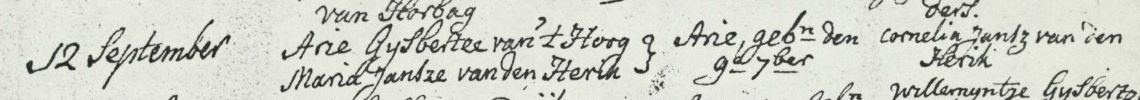 van Horbag
ders.
12 September Arie Gysbertee van 't Hoog } Arie, gebn den Cornelia Jantz van den
Maria Jantze van den Herik 9n 7ber Herik
Willemyntze Gysbertz